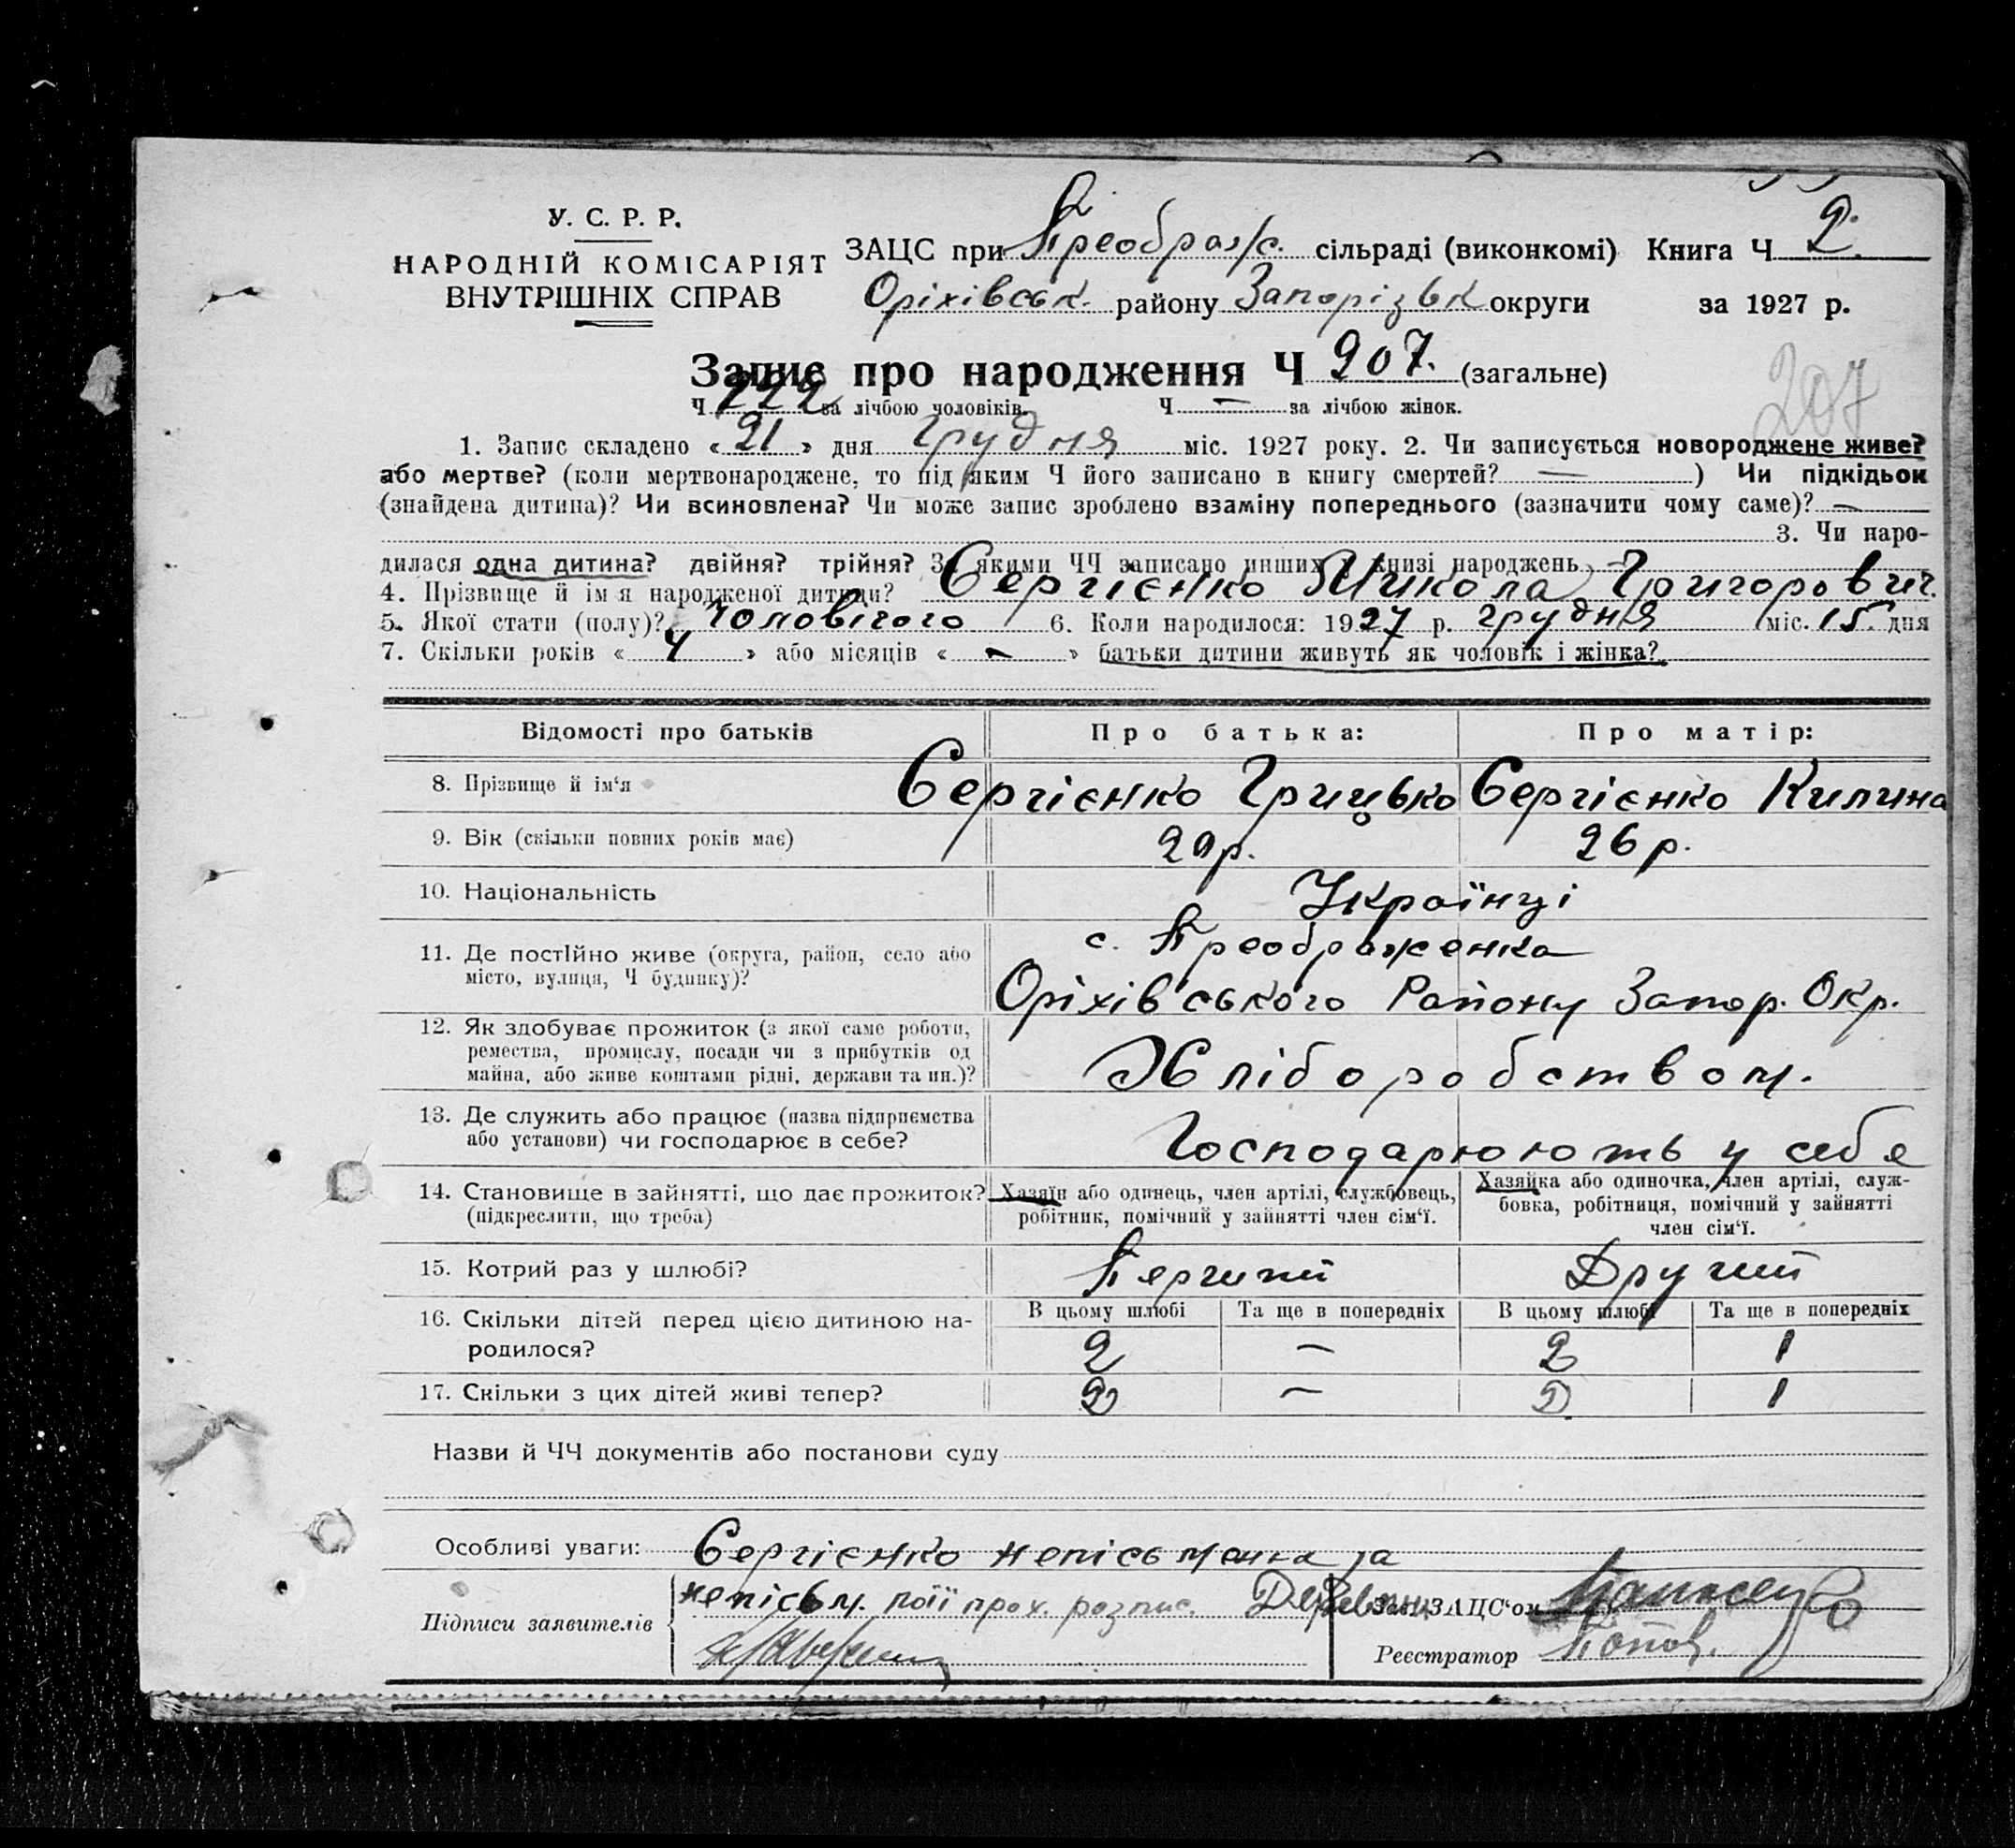 У. С. Р. Р.
НАРОДНІЙ КОМІСАРІЯТ
ВНУТРІШНІХ СПРАВ
ЗАЦС при Преображ. сільраді (виконкомі) Книга Ч 2.
Оріхівськ. району Запорізьк округи за 1927 р.
Запис про народження Ч 207. (загальне)
207
Ч за лічбою чоловіків. Ч — за лічбою жінок.
1. Запис складено « 21 » дня грудня міс. 1927 року. 2. Чи записується новороджене живе?
або мертве? (коли мертвонароджене, то під яким Ч його записано в книгу смертей? — ) Чи підкідьок
(знайдена дитина)? Чи всиновлена? Чи може запис зроблено взаміну попереднього (зазначити чому саме)? —
3. Чи наро-
дилася одна дитина? двійня? трійня? З якими ЧЧ записано инших у книзі народжень —
4. Прізвище й ім'я народженої дитини? Сергієнко Микола Григорович.
5. Якої стати (полу)? Чоловічого 6. Коли народилося: 1927 р. грудня міс. 15. дня
7. Скільки років « 4 » або місяців « - » батьки дитини живуть як чоловік і жінка?
Відомості про батьків Про батька: Про матір:
8. Прізвище й ім'я Сергієнко Грицько Сергієнко Килина
9. Вік (скільки повних років має) 29р. 26р.
10. Національність Українці
11. Де постійно живе (округа, район, село або місто, вулиця, Ч будинку)? с. Преображенка
Оріхівського Району Запор. Окр.
12. Як здобуває прожиток (з якої саме роботи,
ремества, промислу, посади чи з прибутків од
майна, або живе коштами рідні, держави та ин.)? Хліборобством.
13. Де служить або працює (назва підприємства
або установи) чи господарює в себе? Господарюють у себе
14. Становище в зайнятті, що дає прожиток?
(підкреслити, що треба)
Хазяїн або одинець, член артілі, службовець,
робітник, помічний у зайнятті член сім'ї.
Хазяйка або одиночка, член артілі, служ-
бовка, робітниця, помічний у зайнятті
член сім'ї.
15. Котрий раз у шлюбі? Перший Другий
16. Скільки дітей перед цією дитиною на-
родилося?
В цьому шлюбі Та ще в попередніх В цьому шлюбі Та ще в попередніх
2 — 2 1
17. Скільки з цих дітей живі тепер? 2 — 2 1
Назви й ЧЧ документів або постанови суду
Особливі уваги: Сергієнко непісьменна за
Підписи заявителів непісьм. прох. розпис.
Зав. ЗАЦС'ом
Реєстратор Попов.